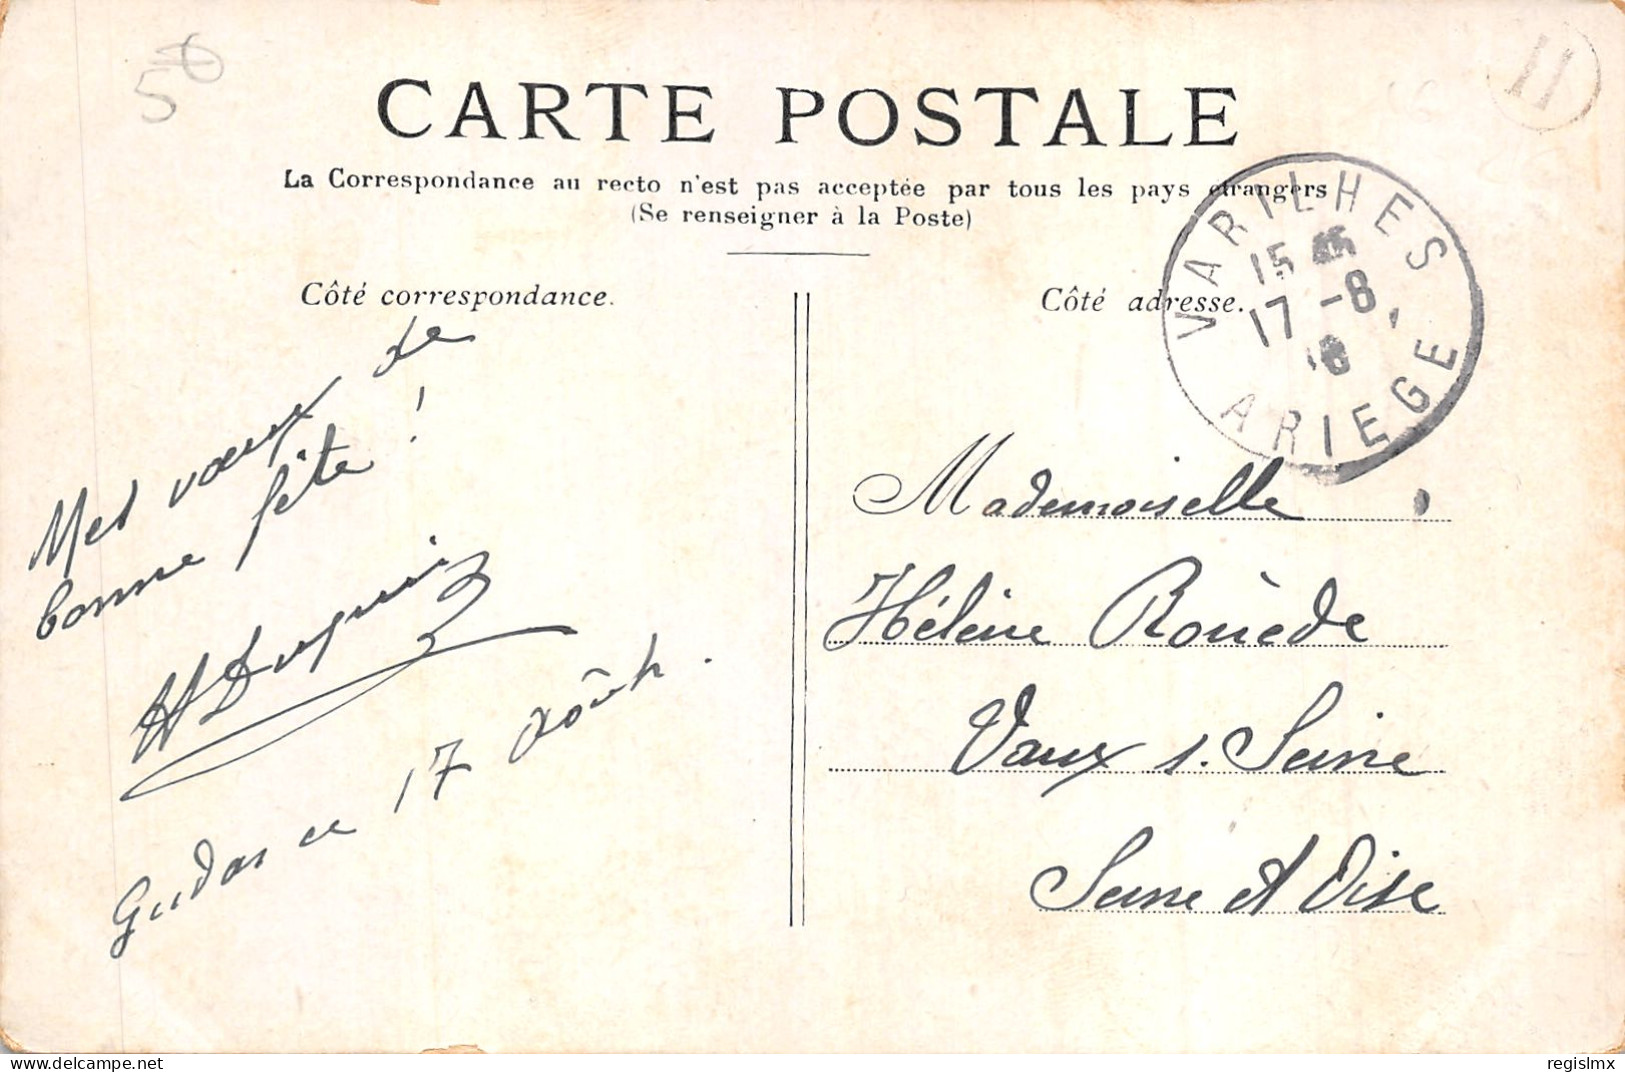 50
CARTE POSTALE
La Correspondance au recto n'est pas acceptée par tous les pays étrangers
(Se renseigner à la Poste)
H
VARILHES
15
17 -8
ARIEGE
Côté correspondance.
Mes vœux de
bonne fête !
Gudas ce 17 Août.
Côté adresse.
Mademoiselle
Hélène Rouède
Vaux s. Seine
Seine et Oise
delcampe.net
regislmx